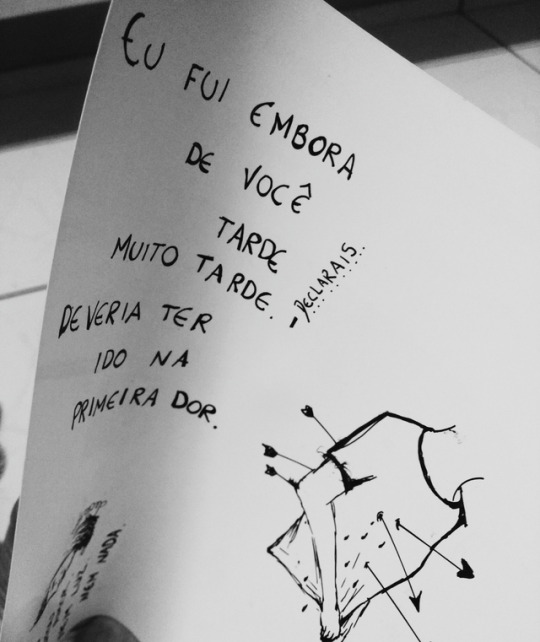 EU FUI EMBORA
DE VOCÊ
TARDE
MUITO TARDE.
- DECLARAIS
DEVERIA TER
IDO NA
PRIMEIRA DOR.
LUZ
NEM NADA.